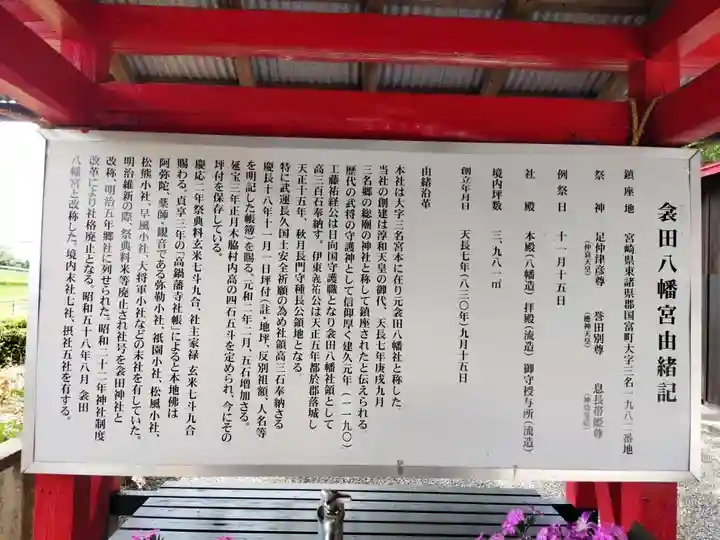 衾田八幡宮由緒記
鎮座地　宮崎県東諸県郡国富町大字三名一九八二番地
祭　神　足仲津彦尊　誉田別尊　息長帯姫尊
（仲哀天皇）　（応神天皇）　（神功皇后）
例祭日　十一月十五日
社　殿　本殿（八幡造）拝殿（流造）御守授与所（流造）
境内坪数　三、九八一㎡
創立年月日　天長七年（八三〇年）九月十五日
由緒沿革
本社は大字三名宮本に在り元衾田八幡社と称した
当社の創建は淳和天皇の御代、天長七年庚戌九月
三名郷の総廟の神社と称して鎮座されたと伝えられる。
歴代の武将の守護神として信仰厚く建久元年（一一九〇）
工藤祐経公は日向国守護職となり衾田八幡社領として
高三百石奉納す。伊東義祐公は天正五年都於郡落城し
天正十五年、秋月長門守種長公領地となる
特に武運長久国土安全祈願の為め社領高三石奉納さる
慶長十八年十一月一日坪付（註・地坪、反別祖額、人名等
を明記した帳簿）を賜る、元和二年二月、五石増加さる。
延宝三年正月木脇村内高の四石五斗を定められ、今にその
坪付を保存している。
慶応二年祭典料玄米七斗九合、社主家禄　玄米七斗九合
賜わる。貞享三年の「高鍋藩寺社帳」によると本地佛は
阿弥陀、薬師・観音である弥勒小社、祇園小社、松風小社、
松熊小社、早風小社、大将軍小社などの末社を有していた。
明治維新の際、祭典料米等廃止され社号を衾田神社と
改称、明治五年郷社に列せられた。昭和二十一年神社制度
改革により社格廃止となる。昭和五十八年八月　衾田
八幡宮と改称した。境内末社七社、摂社五社を有する。